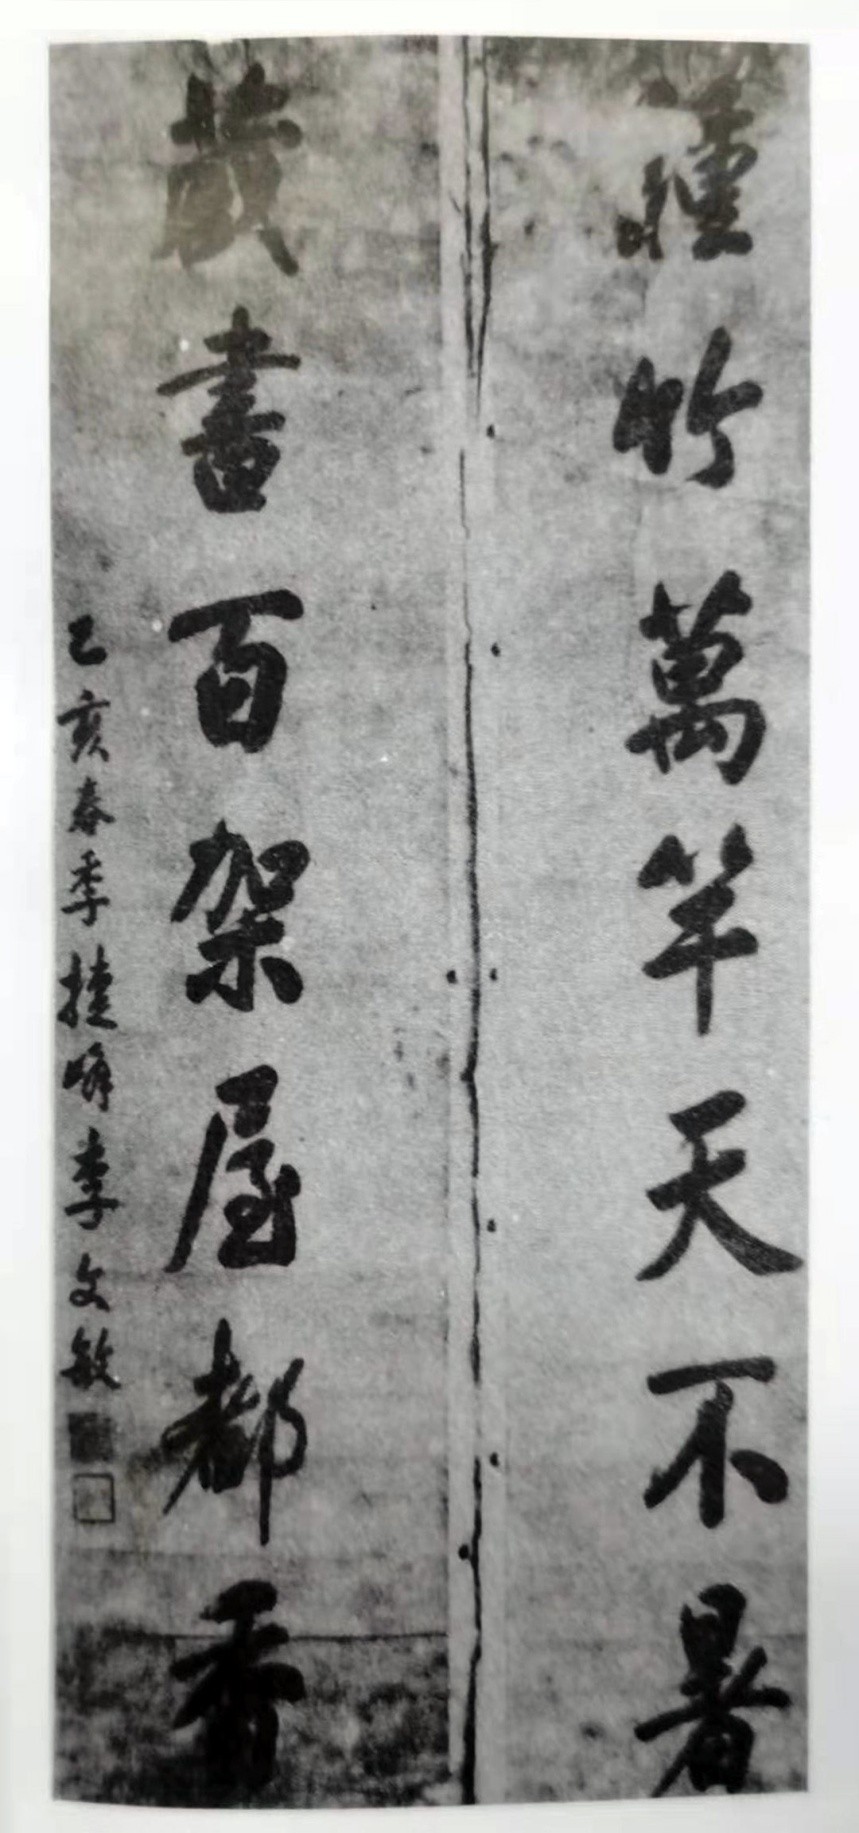 種竹萬竿天不暑
藏書百架屋都香
乙亥春季桂嶠李文敏